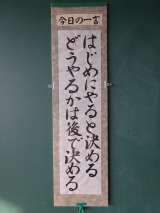 今日の一言
はじめにやると決める
どうやるかは後で決める